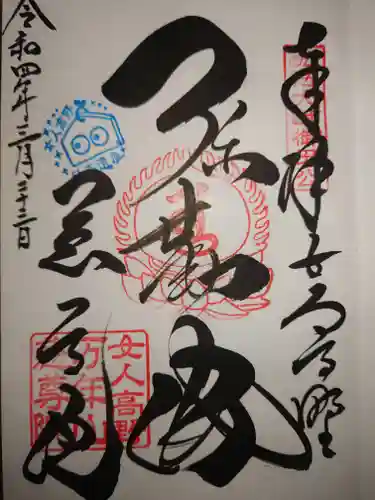 奉拝 女人高野
弥勒佛
慈尊院
令和四年三月二十三日
女人高野
万年山
慈尊院